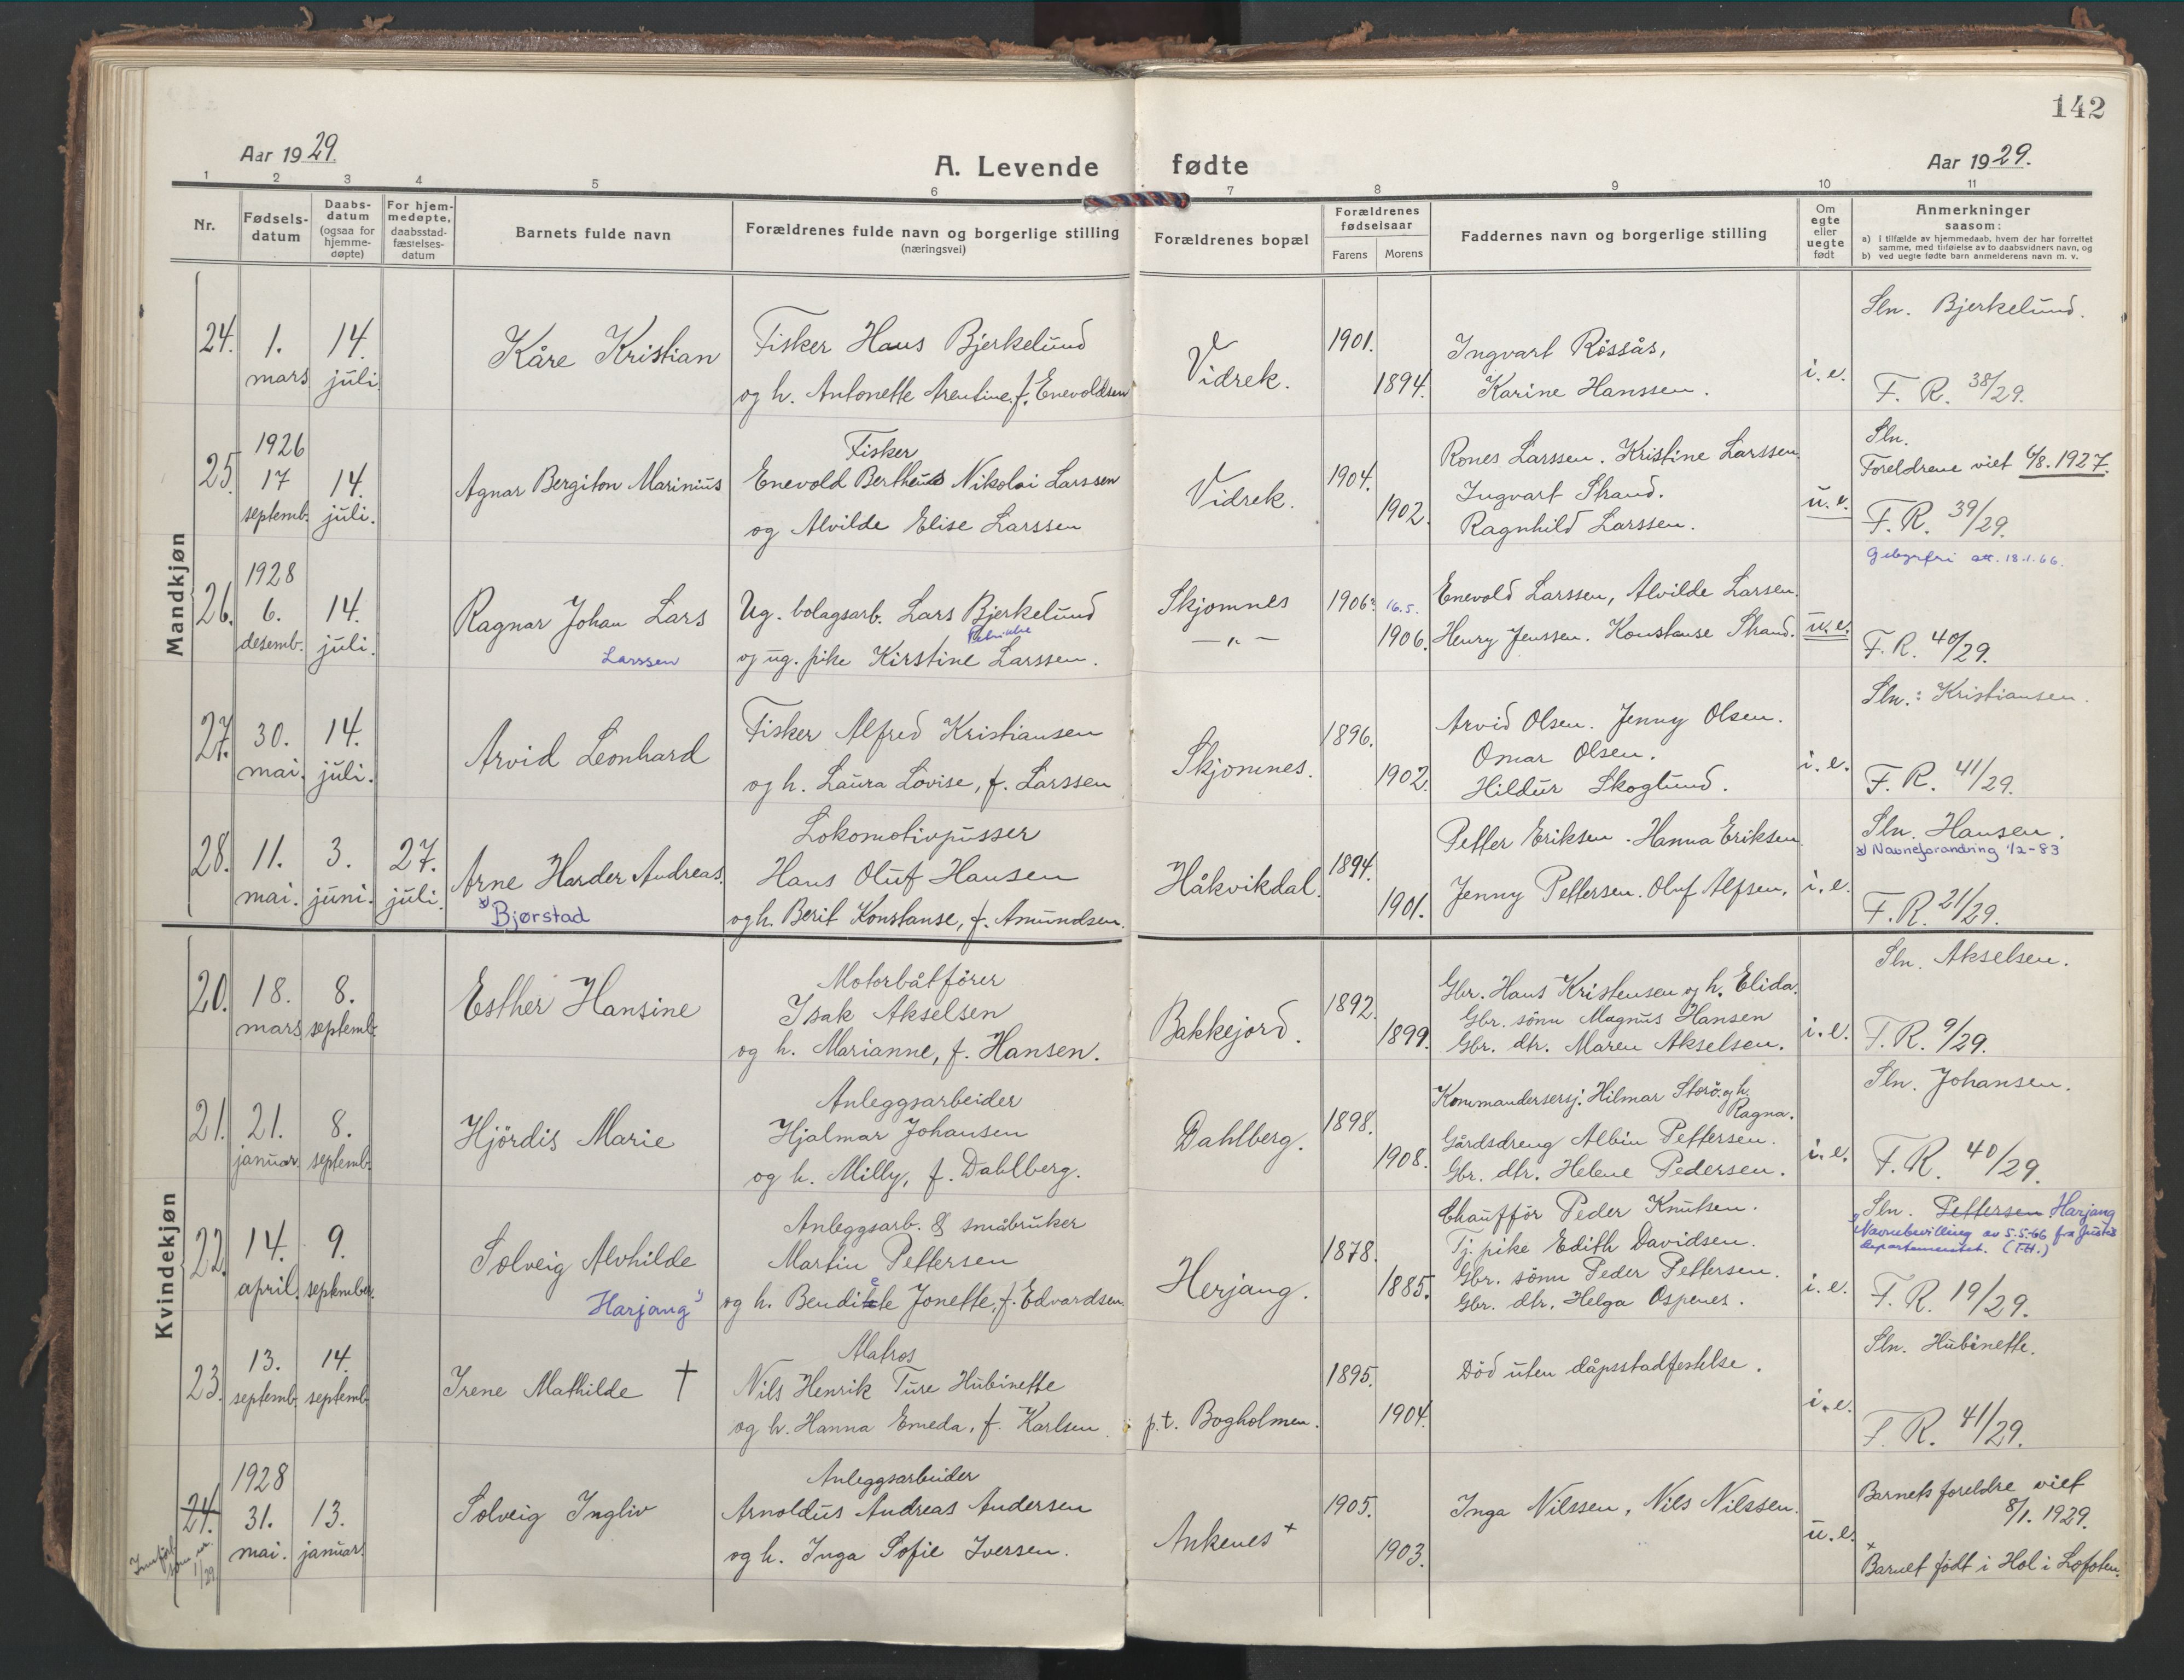 142
Aar 1929.
A. Levende fødte
Aar 1929.
1 2 3 4 5 6 7 8 9 10 11
Nr.
Fødsels-
datum
Daabs-
datum
(ogsaa for
hjemme-
døpte)
For hjem-
medøpte,
daabsstad-
fæstelses-
datum
Barnets fulde navn
Forældrenes fulde navn og borgerlige stilling
(næringsvei)
Forældrenes bopæl
Forældrenes
fødselsaar
Farens Morens
Faddernes navn og borgerlige stilling
Om
egte
eller
uegte
født
Anmerkninger
saasom:
a) I tilfælde av hjemmedaab, hvem der har forrettet
samme, med tilføielse av to daabsvidners navn, og
b) ved uegte fødte barn anmelderens navn m. v.
Mandkjøn
24.
1.
mars
14.
juli.
Kåre Kristian
Fisker Hans Bjerkelund
og h. Antonette Arentine, f. Enevoldsen
Vidrek.
1901.
1894.
Ingvart Rössås,
Karine Hanssen.
i.e.
Sln. Bjerkelund.
F. R. 38/29.
25.
1926
17
septemb.
14.
juli.
Agnar Bergiton Marinius
Fisker
Enevold Bertheus Nikolai Larssen
og Alvilde Elise Larssen
Vidrek.
1904.
1902.
Rones Larssen. Kristine Larssen.
Ingvart Strand.
Ragnhild Larssen.
u.e.
Sln.
Foreldrene viet 6/8.1927.
F. R. 39/29.
Gebyrfri att. 18.1.66.
26.
1928
6.
desemb.
14.
juli.
Ragnar Johan Lars
Larssen
Ug. bolagsarb. Lars Bjerkelund
og ug. pike Kirstine Larssen.
Skjomnes
— " —
1906. 16.5.
1906.
Enevold Larssen, Alvilde Larsen.
Henry Jenssen. Konstanse Strand.
u.e.
F. R. 40/29.
27.
30.
mai.
14.
juli.
Arvid Leonhard
Fisker Alfred Kristiansen
og h. Laura Lovise, f. Larssen
Skjomnes.
1896.
1902.
Arvid Olsen. Jenny Olsen.
Omar Olsen.
Hildur Skoglund.
i.e.
Sln.: Kristiansen.
F. R. 41/29.
28.
11.
mai.
3.
juni.
27.
juli.
Arne Harder Andreas.
x) Bjørstad
Lokomotivpusser
Hans Oluf Hansen
og h. Berit Konstanse, f. Amundsen.
Håkvikdal.
1894.
1901.
Petter Eriksen. Hanna Eriksen
Jenny Pettersen. Oluf Alfsen.
i.e.
Sln. Hansen.
x) Navneforandring 1/2-83
F. R. 21/29.
Kvindekjøn
20.
18.
mars
8.
septemb.
Esther Hansine
Motorbåtfører
Isak Akselsen
og h. Marianne, f. Hansen.
Bakkejord.
1892.
1899.
Gbr. Hans Kristensen og h. Elida.
Gbr. sönn Magnus Hansen
Gbr. dtr. Maren Akselsen.
i.e.
Sln. Akselsen.
F. R. 9/29.
21.
21.
januar.
8.
septemb.
Hjördis Marie
Anleggsarbeider
Hjalmar Johansen
og h. Milly, f. Dahlberg.
Dahlberg.
1898.
1908.
Kommandersersj. Hilmar Storö. og h.
Ragna.
Gårdsdreng Albin Pettersen.
Gbr. dtr. Helene Pedersen.
i.e.
Sln. Johansen.
F. R. 40/29.
22.
14.
april.
9.
september.
Solveig Alvhilde
Harjang 1)
Anleggsarb. & småbruker
Martin Pettersen
og h. Bendikte Jonette, f. Edvardsen.
Herjang.
1878.
1885.
Chaufför Peder Knutsen.
Tj. pike Edith Davidsen.
Gbr. sönn Peder Pettersen.
Gbr. dtr. Helga Ospenes.
i.e.
Sln. Pettersen Harjang
1) Navnebevilling av 5.5.66 fra Justis
departementet. (T.H.)
F. R. 19/29.
23.
13.
septemb.
14.
septemb.
Irene Mathilde †
Matros
Nils Henrik Ture Hubinette
og h. Hanna Emeda, f. Karlsen.
p.t. Bogholmen.
1895.
1904.
Död uten dåpsstadfestelse.
i.e.
Sln. Hubinette.
F. R. 41/29.
24.
Innført
som nr.
1/29
1928
31.
mai.
13.
januar.
Solveig Ingliv
Anleggsarbeider
Arnoldus Andreas Andersen
og h. Inga Sofie Iversen.
Ankenes +
1905.
1903.
Inga Nilssen, Nils Nilssen.
u.e.
Barnets foreldre viet
8/1. 1929.
+ Barnet født i Hol i Lofoten.